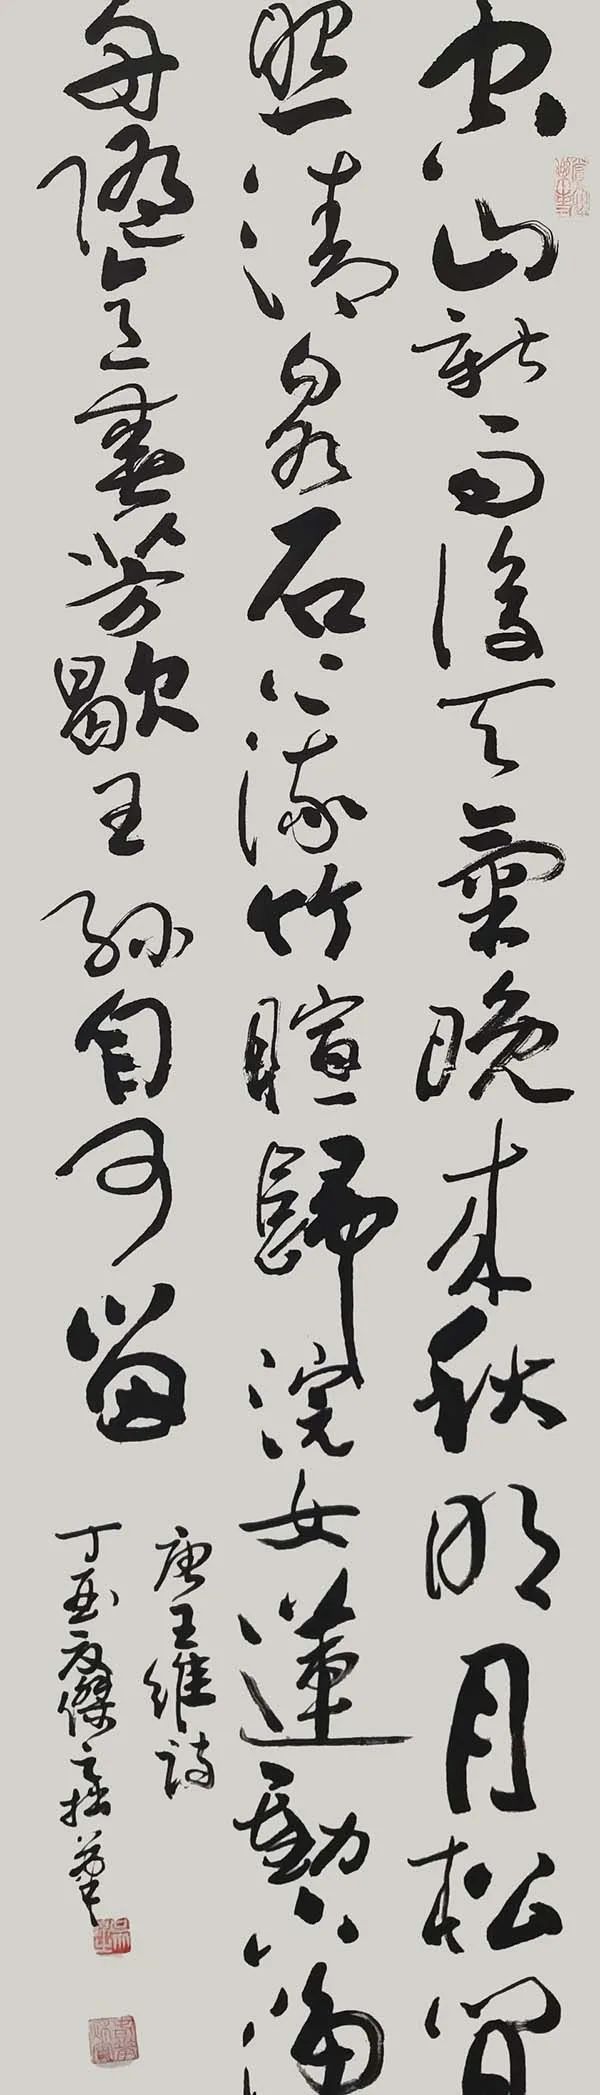 空山新雨後天氣晚来秋明月松間
照清泉石上流竹暄歸浣女蓮動下漁
舟隨意春芳歇王孫自可留
唐王維詩
丁酉傑拙筆